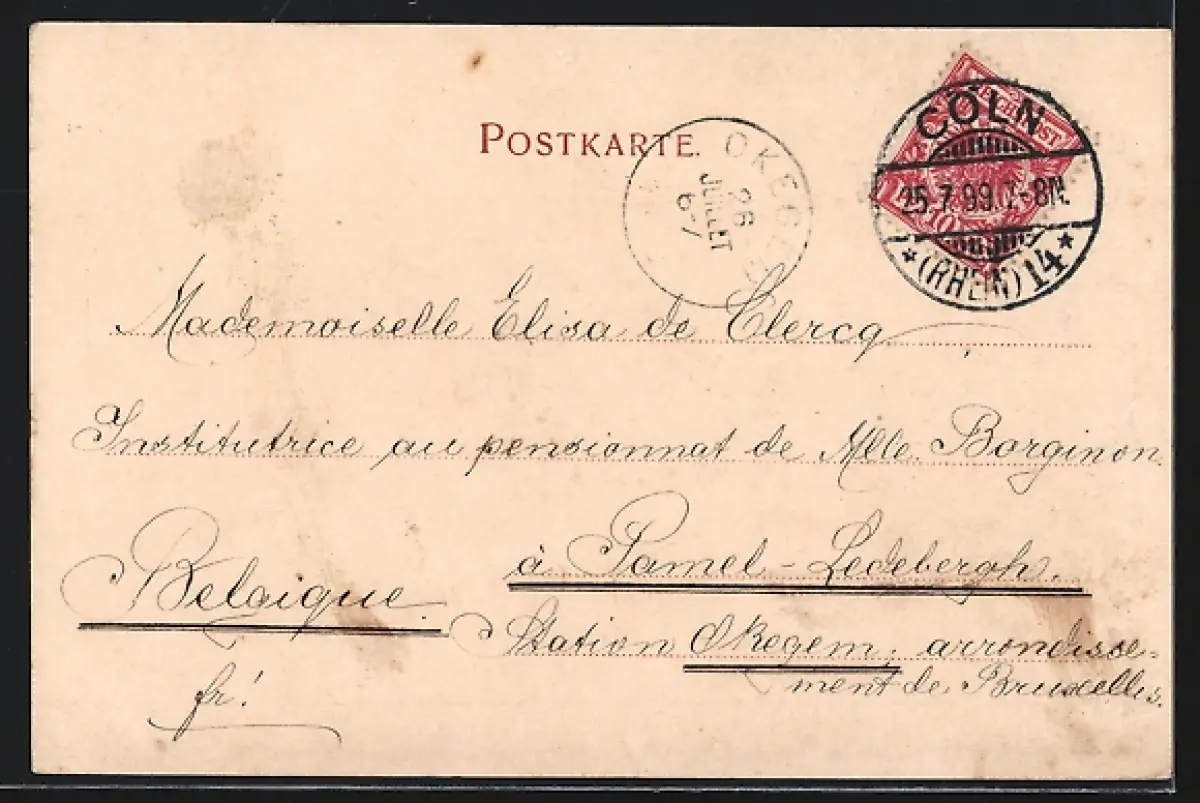 POSTKARTE.
OKEGEM
26
JUILLET
CÖLN
25.7.99.7-8N.
* (RHEIN) 14 *
REICHSPOST
10
Mademoiselle Elisa de Clercq
Institutrice au pensionnat de Mlle. Borginon
à Pamel - Ledebergh.
Belgique
Station Okegem, arrondisse-
ment de Bruxelles.
fr!